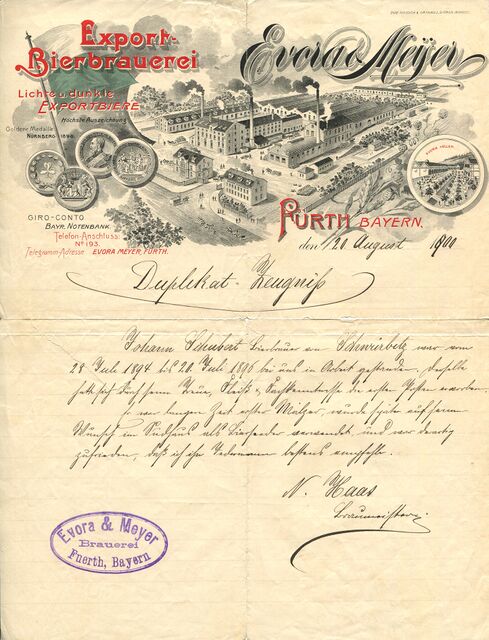 Export-
Bierbrauerei
Evora & Meyer
Lichte u. dunkle
EXPORTBIERE
Höchste Auszeichnung
Goldene Medaille
NÜRNBERG 1896.
EVORA MEYER
GIRO-CONTO
BAYR. NOTENBANK.
Telefon-Anschluss:
No 193.
Telegramm-Adresse EVORA MEYER, FÜRTH.
FÜRTH BAYERN.
den 20 August 1900
Duplikat-Zeugniß
Johann Schubert Bierbrauer von war vom
28 Juli 1894 bis 20 Juli 1896 bei uns in Arbeit gestanden. Derselbe
hatte sich durch seine Treue, Fleiß & Fachkenntnisse die ersten Posten erworben.
Er war langen Zeit erster Mälzer, wurde später auf seinen
Wunsch im Sudhaus als Biersieder verwendet, und war derartig
zufrieden, daß ich ihn Jedermann bestens empfehle.
N. Haas
Braumeister.
Evora & Meyer
Brauerei
Fuerth, Bayern